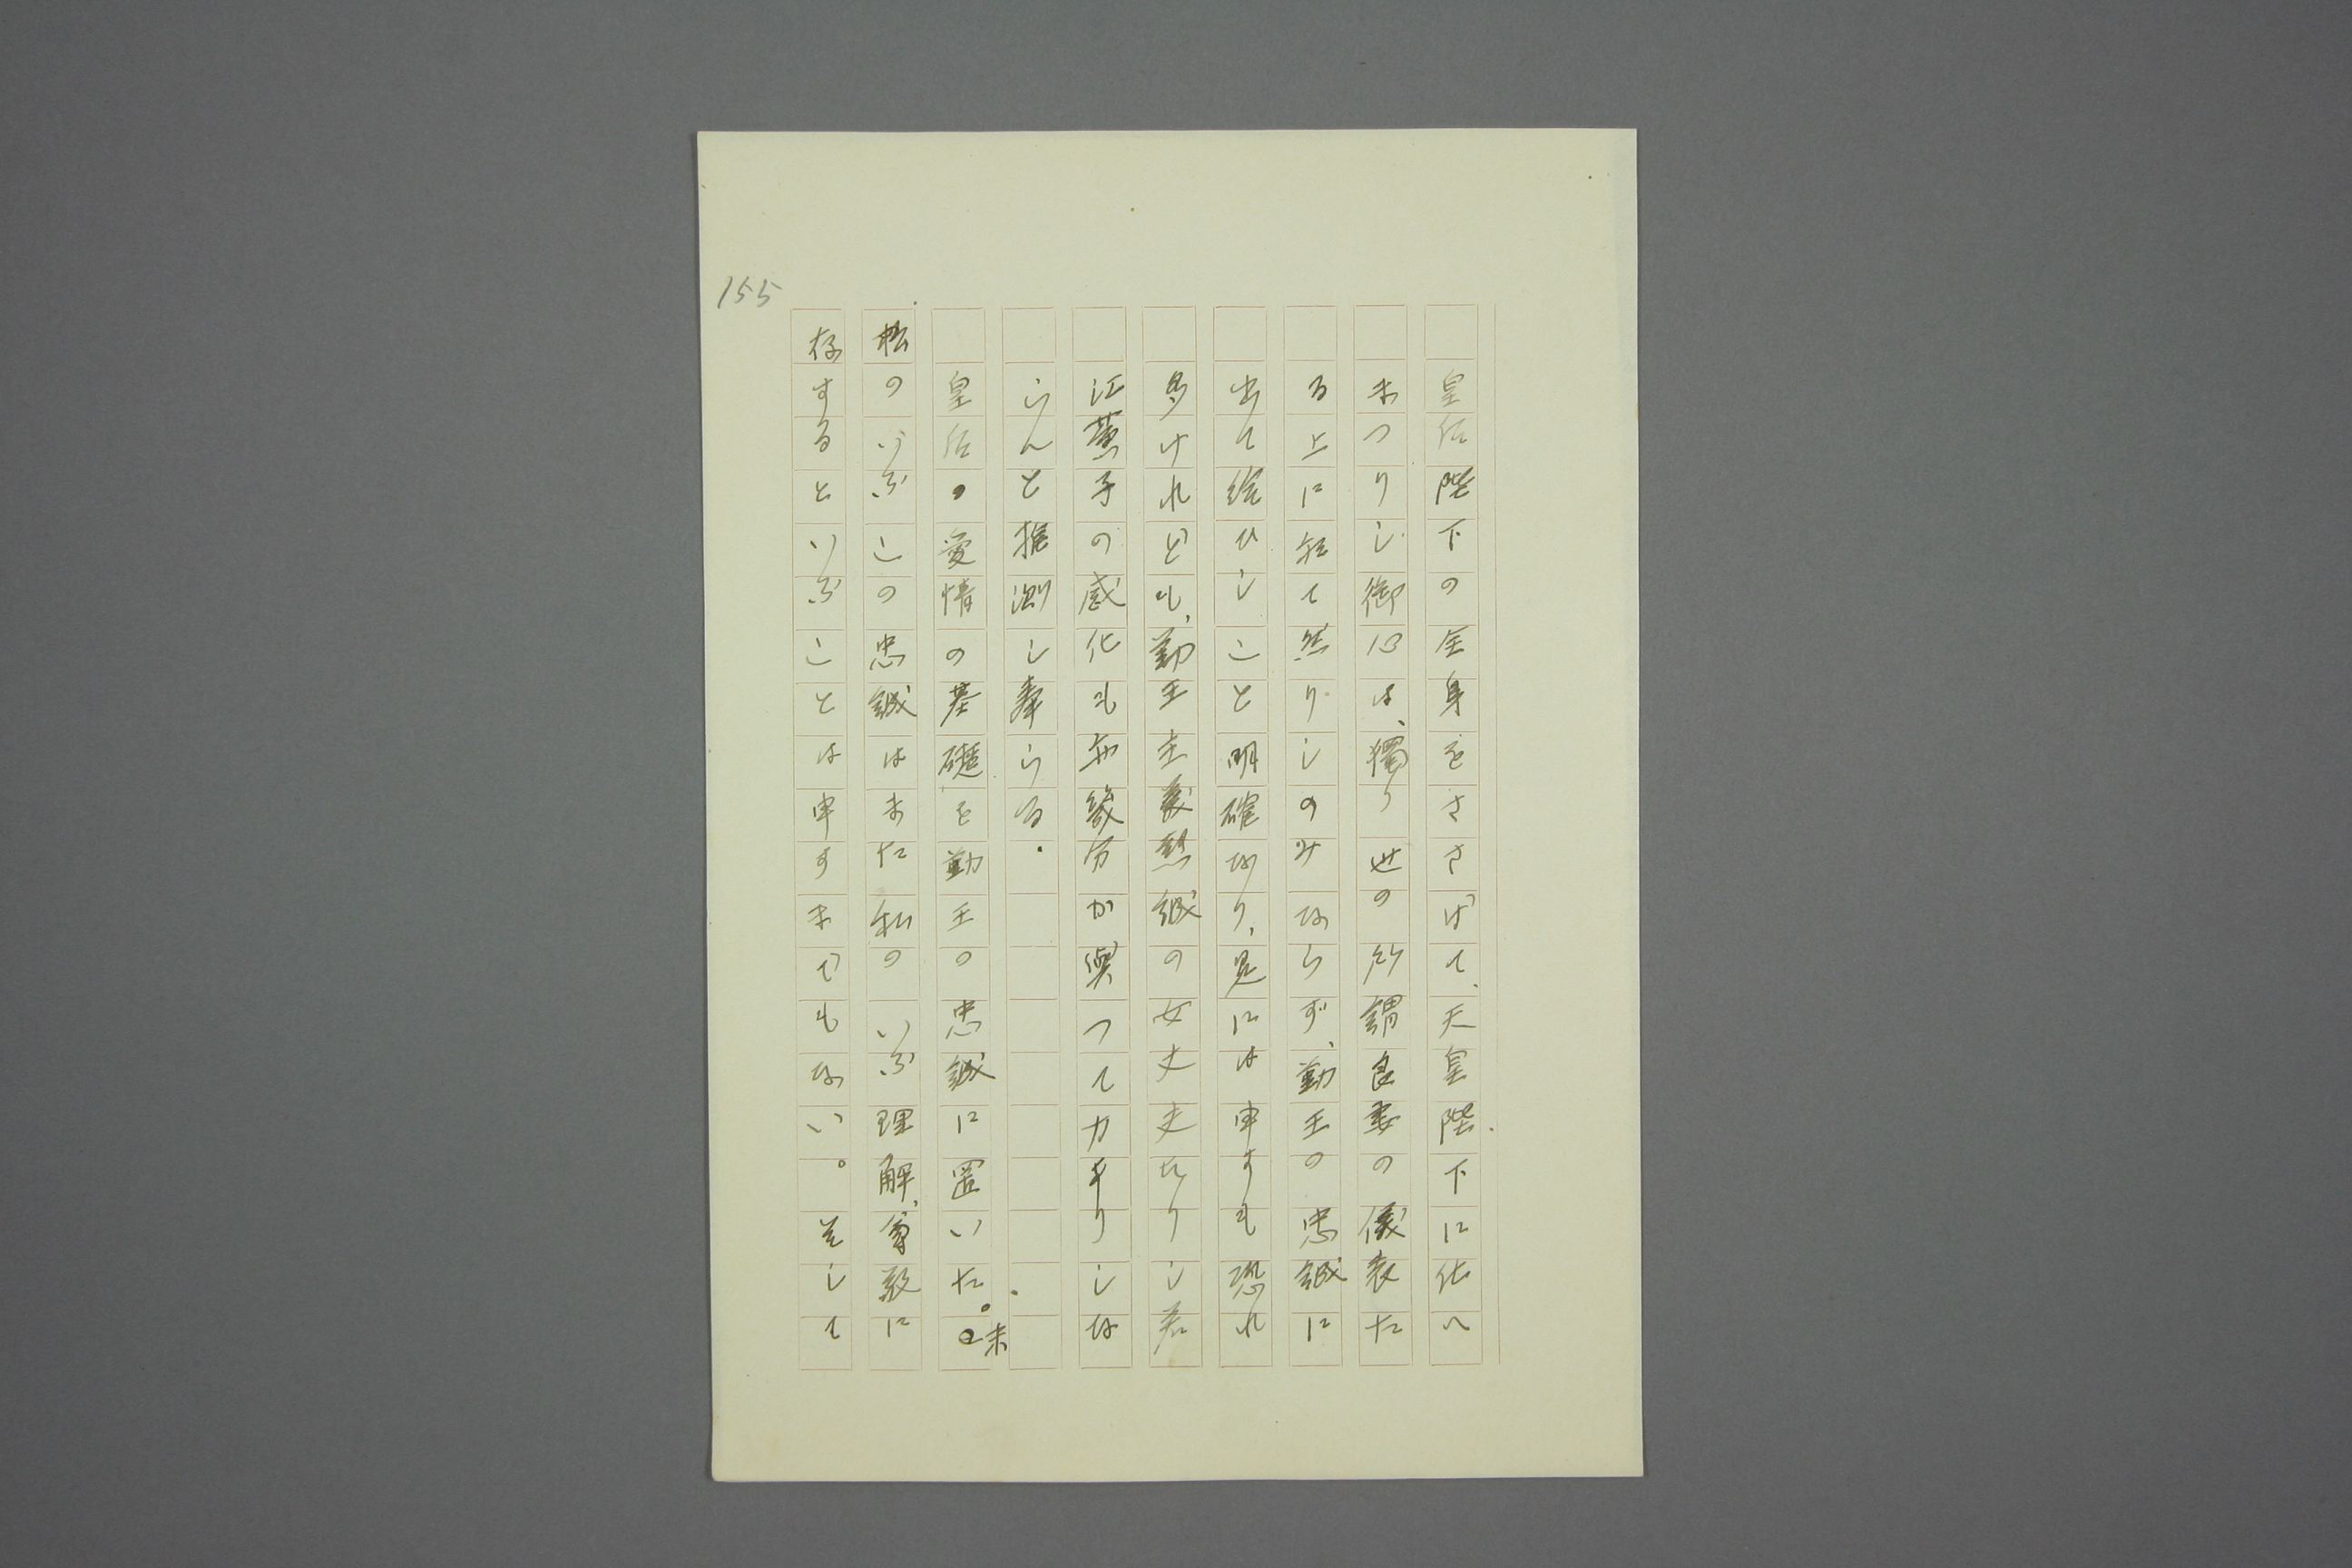 155
皇后陛下の全身をささげて、天皇陛下に仕へ
まつりし御心は、獨り世の所謂良妻の儀表た
る上に於て然りしのみならず、勤王の忠誠に
出で給ひしこと明確なり、是には申すも恐れ
多けれども、勤王主義熱誠の女丈夫なりし若
江薫子の感化も亦幾分か與つて力ありしな
らんと推測し奉らる。
皇后の愛情の基礎を勤王の忠誠に置いた。
私のいふこの忠誠はまた私のいふ理解、尊敬に
存するといふことは申すまでもない。そして